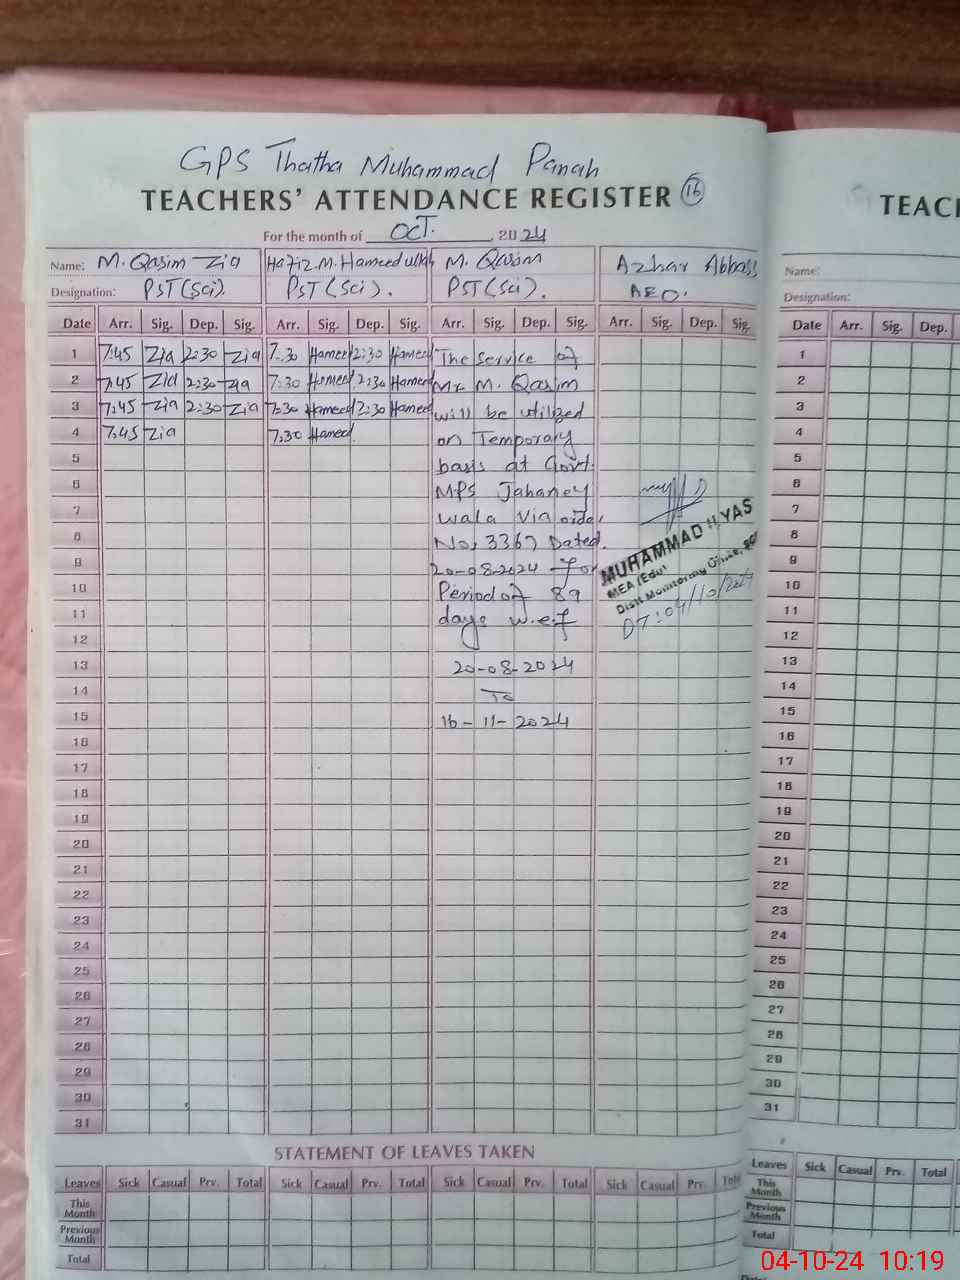 GPS Thatha Muhammad Panah
TEACHERS' ATTENDANCE REGISTER 16
For the month of OCT. , 2024
Name: M. Qasim Zia Hafiz.M.Hameedullah M. Qasim Azhar Abbass
Designation: PST(Sci). PST(Sci). PST(Sci). AEO.
Date Arr. Sig. Dep. Sig. Arr. Sig. Dep. Sig. Arr. Sig. Dep. Sig. Arr. Sig. Dep. Sig.
1 7:45 Zia 2:30 Zia 7:30 Hameed 2:30 Hameed The Service of
2 7:45 Zia 2:30 Zia 7:30 Hameed 2:30 Hameed Mr M. Qasim
3 7:45 Zia 2:30 Zia 7:30 Hameed 2:30 Hameed will be utilized
4 7:45 Zia 7:30 Hameed on Temporary
5 basis at Govt.
6 MPS Jahaney
7 wala via order
8 No, 3367 Dated.
9 20-08-2024 for
10 Period of 89
11 days w.e.f
12
13 20-08-2024
14 To
15 16-11-2024
16
17
18
19
20
21
22
23
24
25
26
27
28
29
30
31
MUHAMMAD ILYAS
MEA (Edu)
Distt Monitoring Office,
DT:04/10/2024
STATEMENT OF LEAVES TAKEN
Leaves Sick Casual Prv. Total Sick Casual Prv. Total Sick Casual Prv. Total Sick Casual Prv. Total
This Month
Previous Month
Total
TEAC
Name:
Designation:
Date Arr. Sig. Dep.
1
2
3
4
5
6
7
8
9
10
11
12
13
14
15
16
17
18
19
20
21
22
23
24
25
26
27
28
29
30
31
Leaves Sick Casual Prv. Total
This Month
Previous Month
Total
04-10-24 10:19